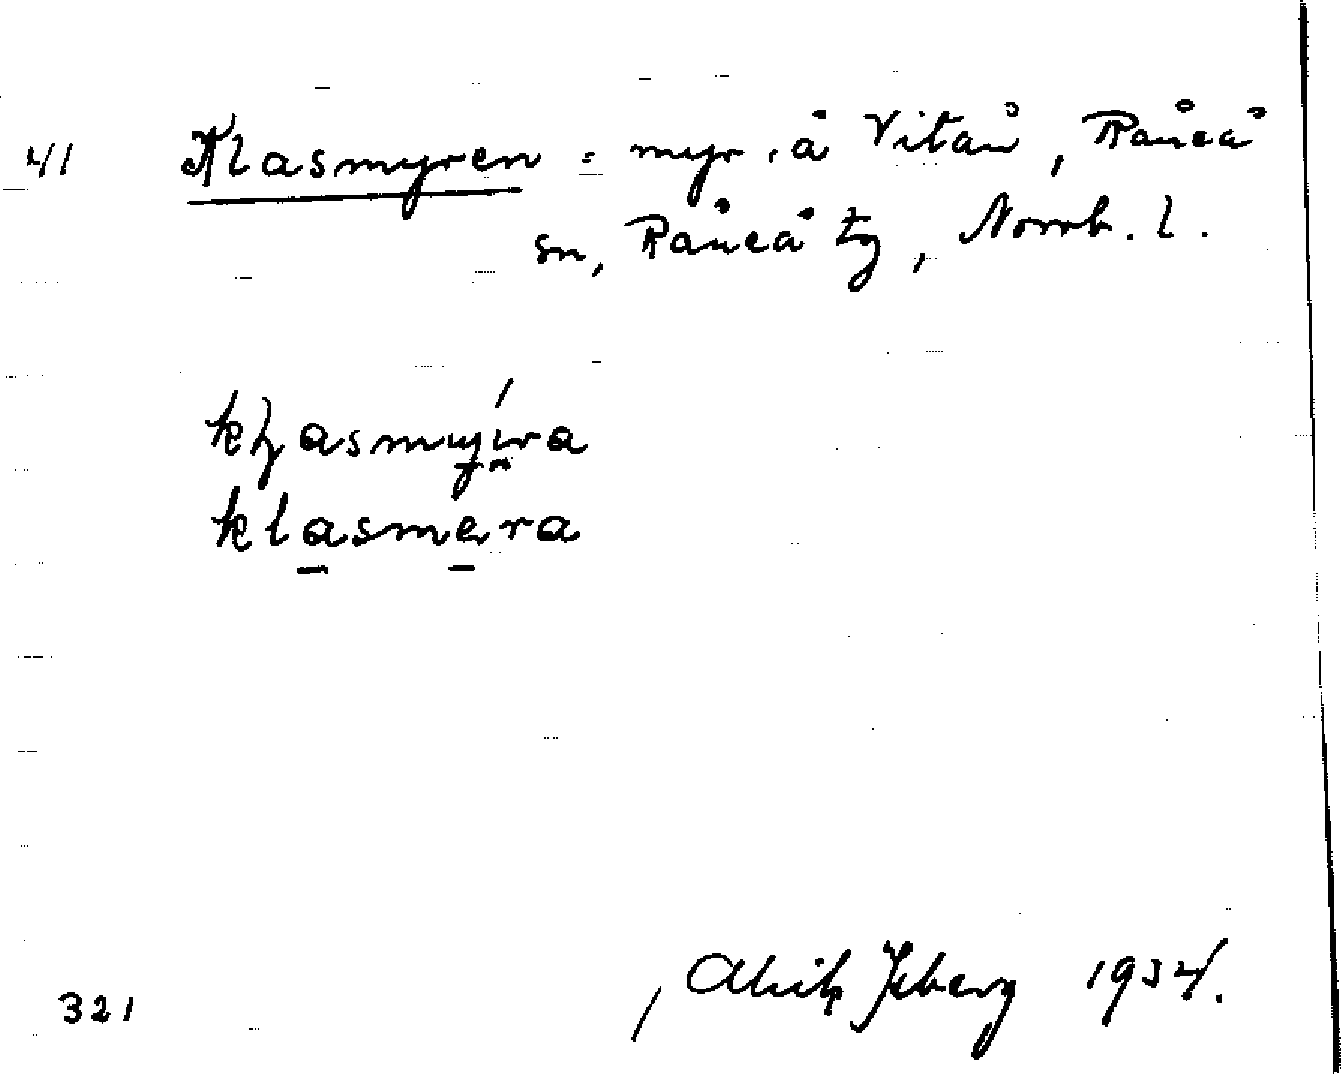 41 Klasmyren = myr å Vitån, Råneå
sn, Råneå tg, Norrb. l.
klasmyira
klasmera
321 1934.